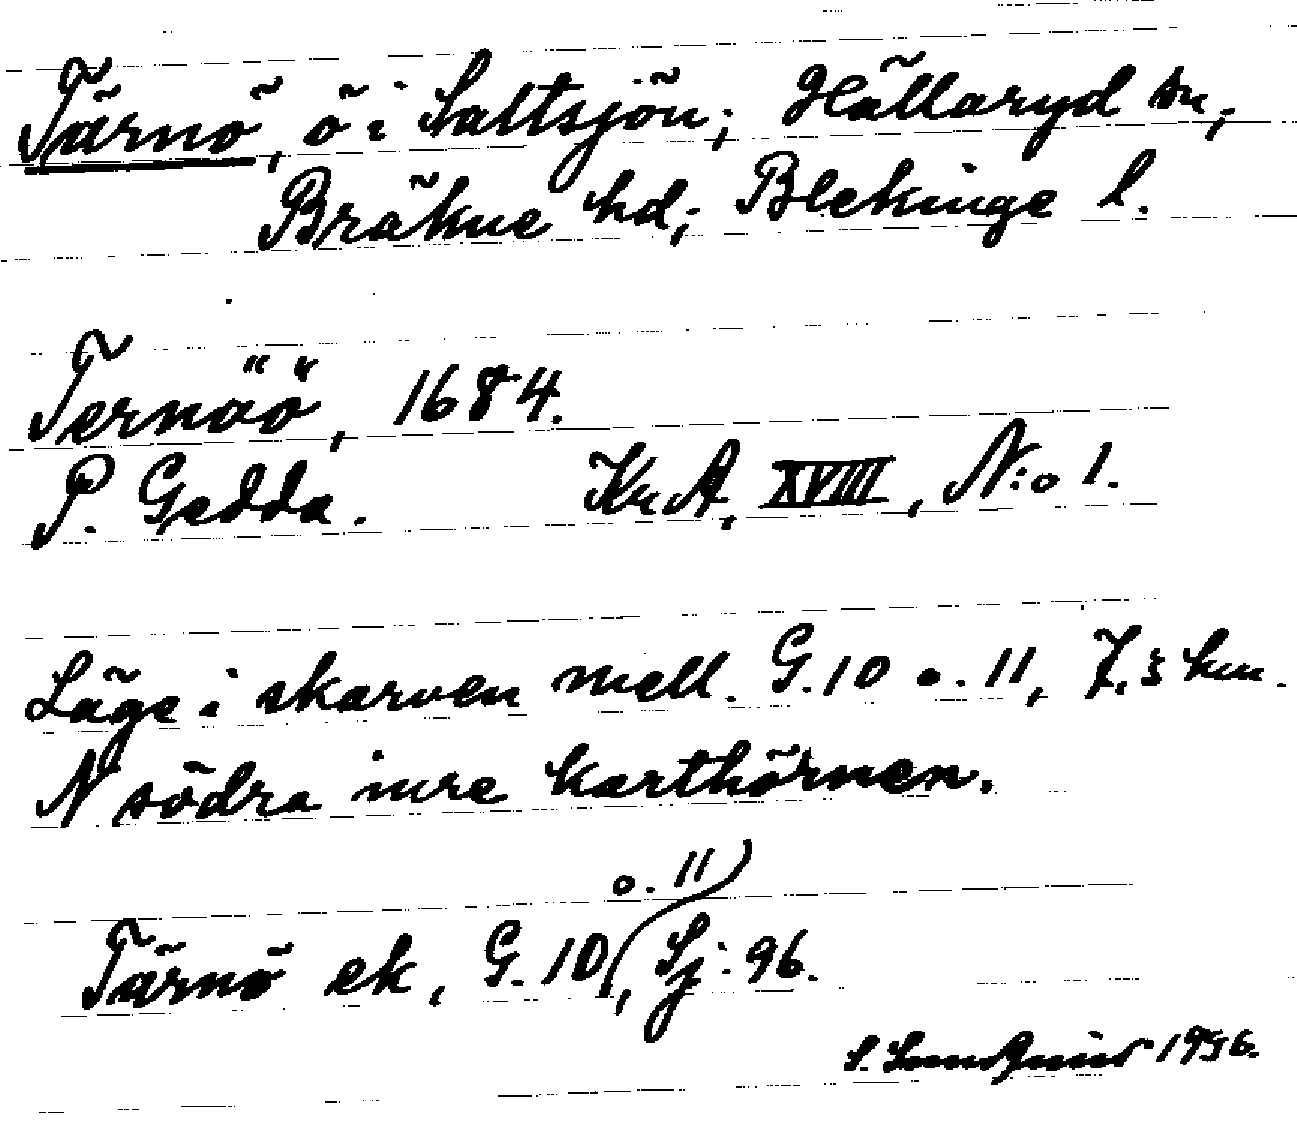 Tärnö, ö i Saltsjön; Hällaryd sn;
Bräkne hd; Blekinge l.
Ternäö, 1684.
P. Gedda. Kr.A, XVIII, N:o 1.
Läge i skarven mell. G.10 o. 11, 7,5 km.
N södra inre karthörnen.
Tärnö ek, G.10 o. 11, Sj: 96.
S. 1956.